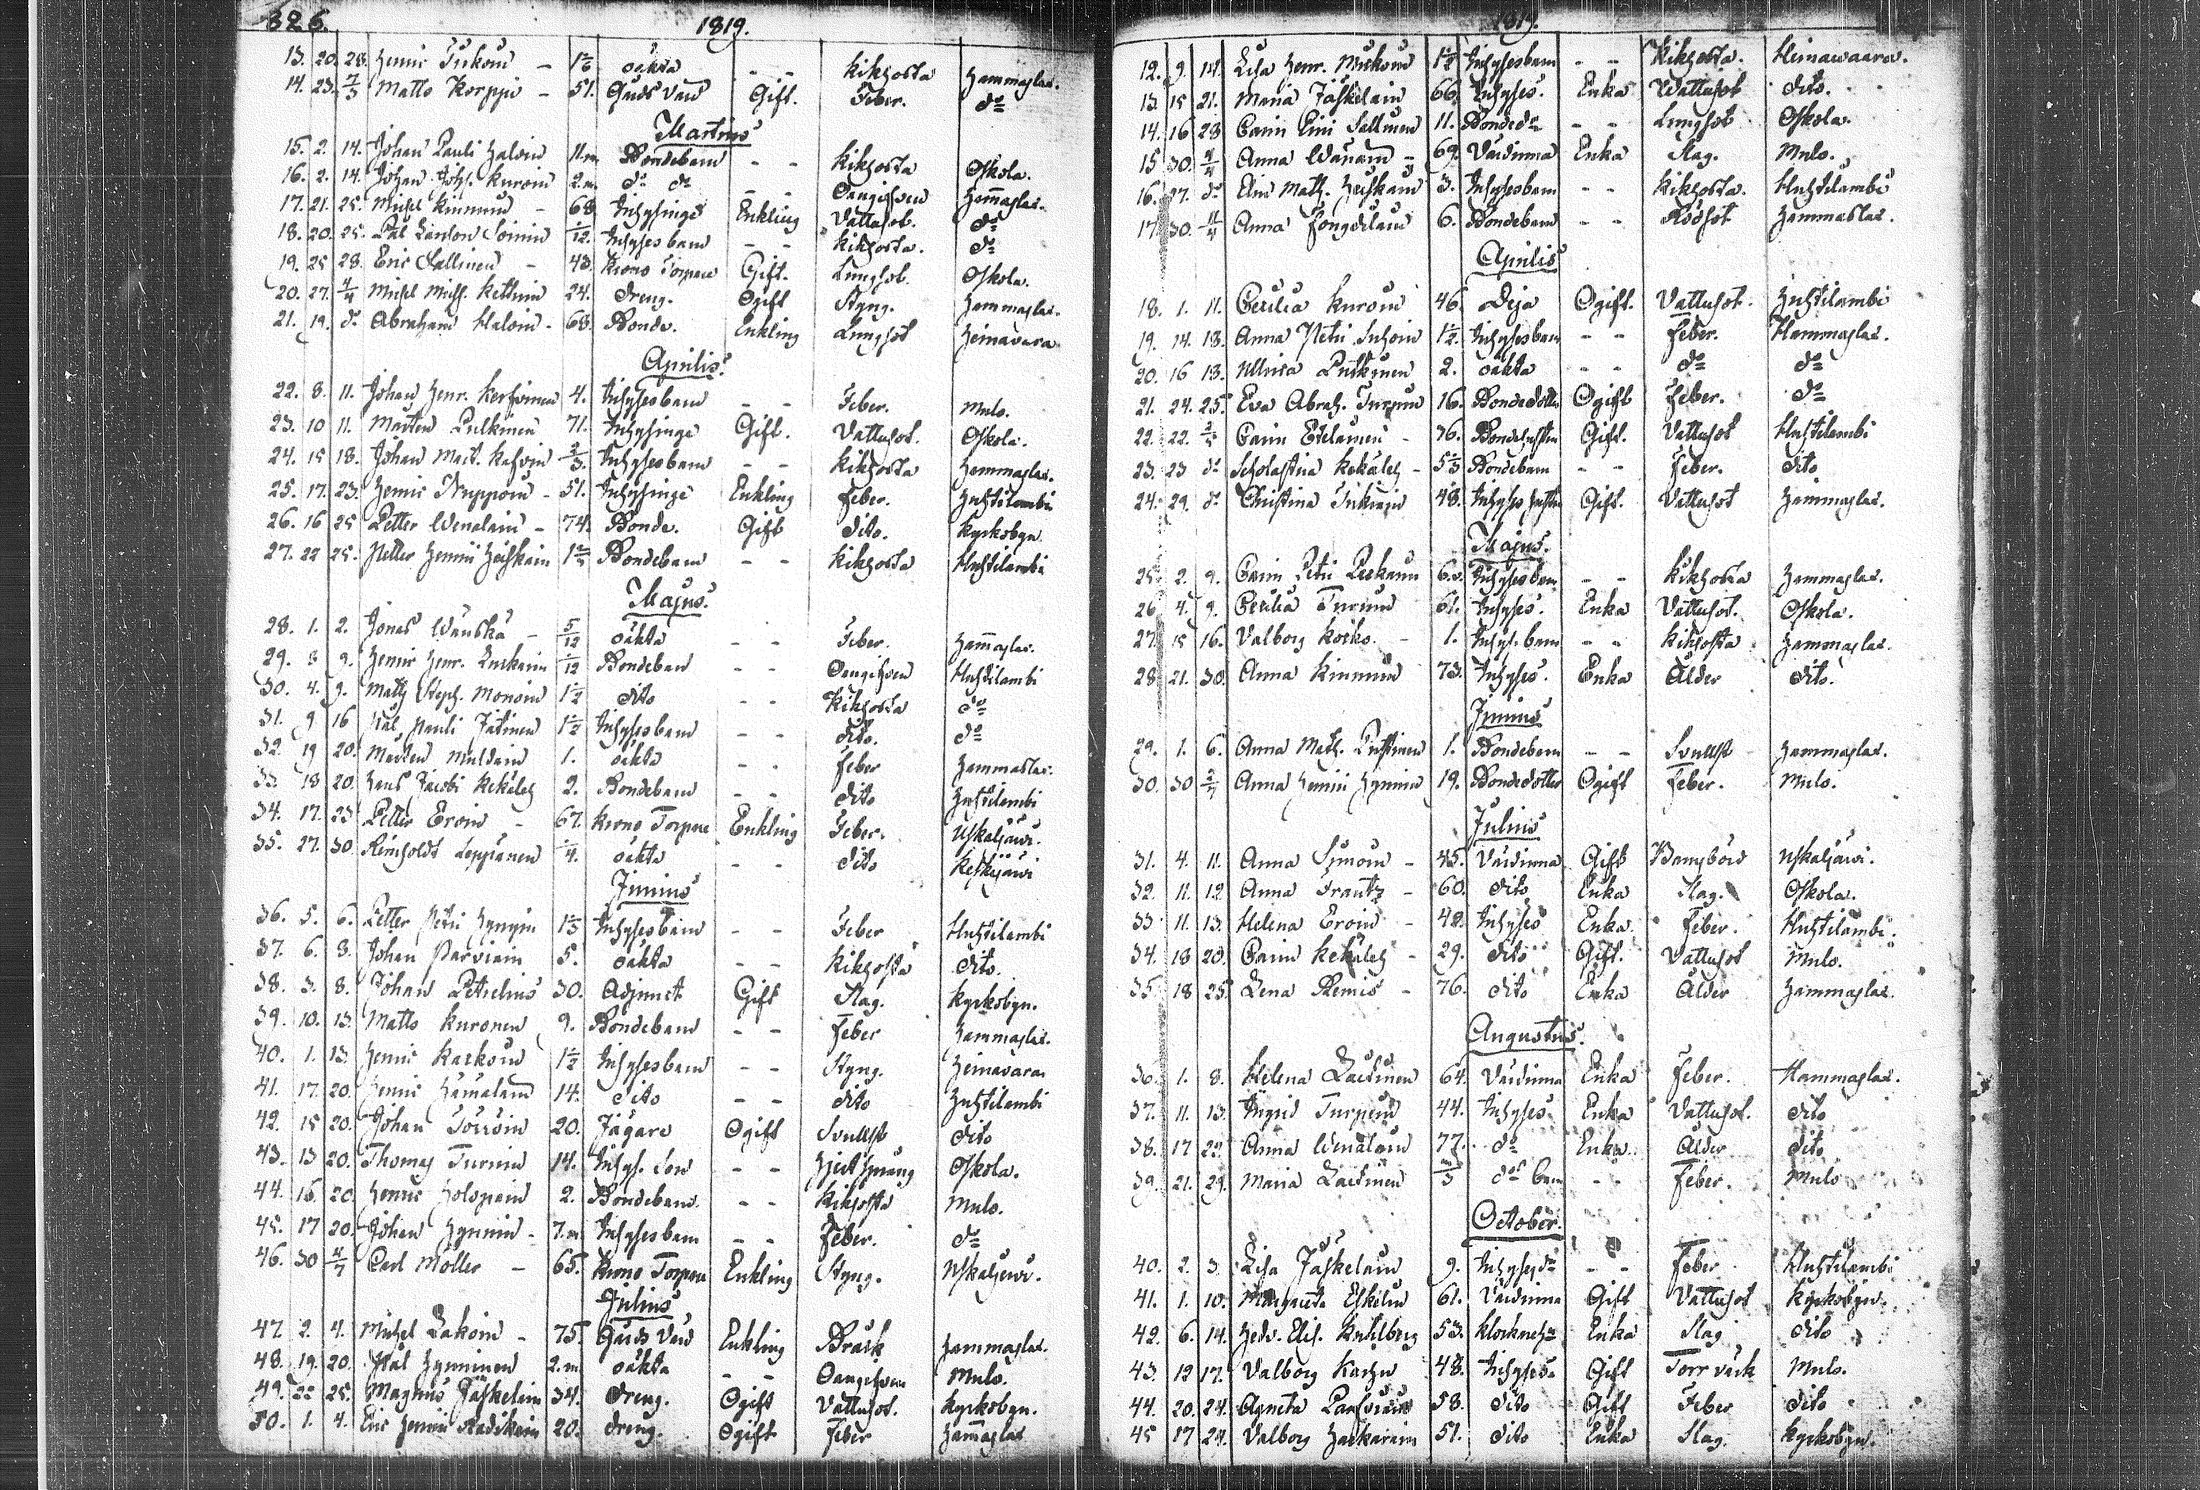 326. 1819.
13. 20. 28. Henric Tiukoin - 1 1/2 oäkta - - Kikhosta Hammaslax.
14. 23. 7/3 Matts Korppi - 51. Gårds Vard Gift. Feber. do
Martius
15. 2. 14. Johan Pauli Haloin 11.m Bondebarn - - Kikhosta Oskola.
16. 2. 14. Johan Joh. Kuroin 2.m do do - - Hammaslax.
17. 21. 25. Michel Kinnuin - 68 Inhysinge Enkling Vattusot. do
18. 20. 25. Pål Larson Soinin /12 Inhyses barn - - Kikhosta. do
19. 25 28. Eric Sallinen - 43. Krono Torpare Gift. Lungsot. Oskola.
20. 27. 4/4 Michel Mich. Kettuin 24. Dreng. Ogift Styng. Hammaslax.
21. 19. do Abraham Haloin - 68. Bonde. Enkling Lungsot Heinavara
Aprilis.
22. 8. 11. Johan Henr. 4. Inhysesbarn - - Feber. Mulo.
23. 10 11. Mårten Pulkinen 71. Inhysinge Gift. Vattusot. Oskola.
24. 15 18. Johan Mart. 2/3. Inhysesbarn - - Kikhosta Hammaslax.
25. 17. 23. Henric Nuppoin - 51. Inhysinge Enkling Feber. Huhtilambi
26. 16 25 Petter Wenalain - 74. Bonde. Gift dito. Kyrkobyn.
27. 22 25. Petter Henrici Heiskain 1 Bondebarn - - Kikhosta Huhtilambi
Majus.
28. 1. 2. Jonas Wänskä - 5/12 oäkta - - Feber. Hammaslax.
29. 8 9. Henric Henr. /12 Bondebarn - - Huhtilambi
30. 4. 9. Math. Steph. Monoin 1 1/2 dito - - Kikhosta do
31. 9 16 Pål Pauli Jatinen 1 1/2 Inhysesbarn - - dito. do
32. 19 20. Mårten Muldain 1. oäkta - - Feber Hammaslax.
33. 18 20. Hans Jacobi Kekäles 2. Bondebarn - - dito Huhtilambi
34. 17. 23 Petter Eroin - 67. Krono Torpare Enkling Feber. Uskaljärvi.
35. 27. 30. Reinholdt Leppänen /4. oäkta - - dito Keskijärvi
Junius
36. 5. 6. Petter Petri Hynyin 1 Inhysesbarn - - Feber Huhtilambi
37. 6. 8. Johan Parviain 5. oäkta - - Kikhosta dito.
38. 3. 8. Johan Petrelius 30. Adjunct Gift Slag. Kyrkobyn.
39. 10. 13. Matts Kuronen 9. Bondebarn - - Feber Hammaslax.
40. 1. 13. Henric Karkoin 1 1/2 Inhysesbarn - - Styng. Heinavara
41. 17. 20. Henric Hämäläin 14. dito - - dito Huhtilambi
42. 15 20. Johan Torroin 20. Jägare Ogift Svullst dito
43. 13 20. Thomas Turuin 14. Inhys. Son - - Oskola.
44. 16. 20 Henric Holopain 2. Bondebarn. - - Kikhosta Mulo.
45. 17 20. Johan Hynnin - 7.m Inhysesbarn - - Feber. do
46. 30 4/7 Carl Moller - 65. Krono Torpare Enkling Styng. Uskaljärvi.
Julius
47. 2. 4. Michel Lakoin - 75. Gårds Vard Enkling Bråck Hammaslax.
48. 19. 20. Pål Hynninen 2.m oäkta - - Mulo.
49. 22 25. Magnus Jäskelein 34. dreng. Ogift Vattusot. Kyrkobyn.
50. 1. 4. Eric Henrici 20. dreng. Ogift Feber Hammaslax
1819.
12. 9. 14. Lisa Henr. Mustoin 1 1/2 Inhysesbarn - - Kikhosta. Heinawaara.
13. 15 21. Maria Jäskelain 66. Inhyses. Enka Wattusot dito.
14. 16 28 Carin Sallinen 11. Bonded. - - Lungsot Oskola.
15 30. 4/4 Anna Wänäin - 69. Värdinna Enka Slag. Mulo.
16. 27. do Elin Math. Heiskain 3. Inhysesbarn - - Kikhosta. Huhtilambi
17. 30. 11/4 Anna 6. Bondebarn - - Rödsot Hammaslax.
Aprilis
18. 1. 11. Cecilia Kuroin 46. Deja Ogift. Vattusot. Huhtilambi
19. 14. 18. Anna Petri Suhoin 1 1/2. Inhysesbarn - - Feber. Hammaslax.
20. 16 18. Ulrica Pulkinen 2. oäkta - - do do
21. 24. 25. Eva Abrah. Turpuin 16. Bondedotter Ogift Feber. do
22. 22. Carin Etelainen - 76. Bondehustru Gift. Vattusot Huhtilambi
23. 23 do Scholastica Kekäles - 5 Bondebarn - - Feber. dito
24. 29. do Christina Tiukain 48. Inhyses hustru Gift. Vattusot Hammaslax.
Majus.
25. 2. 9. Carin Petri 6. Inhysesbarn - - Kikhosta Hammaslax.
26. 4. 9. Cecilia Turuin 61. Inhyses. Enka Vattusot. Oskola.
27. 15 16. Valborg Korho. - 1. Inhys. barn - - Kikhosta Hammaslax.
28. 21. 30. Anna Kinnuin 73. Inhyses. Enka Ålder dito.
Junius
29. 1. 6. Anna Math. 1. Bondebarn - - Svullst Hammaslax.
30. 30 2/7 Anna Henrici Hynnin 19. Bondedotter Ogift Feber. Mulo.
Julius
31. 4. 11. Anna Simoin - 45. Värdinna Gift Barnsbörd Uskaljärvi.
32. 11. 12 Anna Frantz - 60. dito Enka Slag. Oskola.
33 11. 13. Helena Eroin - 48. Inhyses Enka. Feber. Huhtilambi.
34. 18 20. Carin Kekäles - 29. dito Gift. Vattusot Mulo.
35 18 25. Lena Remes - 76. dito Enka Ålder Hammaslax.
Augustus.
36. 1. 8. Helena Laitinen 64. Värdinna Enka Feber. Hammaslax.
37. 11. 13. Ingrid Turpein 44. Inhyses Enka Vattusot. dito
38. 17 22. Anna Wenäläin 77. do Enka. Ålder dito
39. 21. 29. Maria Laitinen 3 do barn - - Feber. Mulo
October.
40. 2. 3. Lisa Jäskelain 9. Inhysesd. - - Feber Huhtilambi
41. 1. 10. Margareta Eskelin 61. Värdinna Gift Vattusot Kyrkobyn.
42. 6. 14. Hedv. Elis. 53. Enka Slag dito
43. 12 17. Valborg Karhu 48. Inhyses. Gift Torr värk Mulo.
44. 20. 24. Agneta Parfviain 58. dito Gift Feber dito
45 17 24. Valborg Hackarain 51. dito Enka Slag. Kyrkobyn.